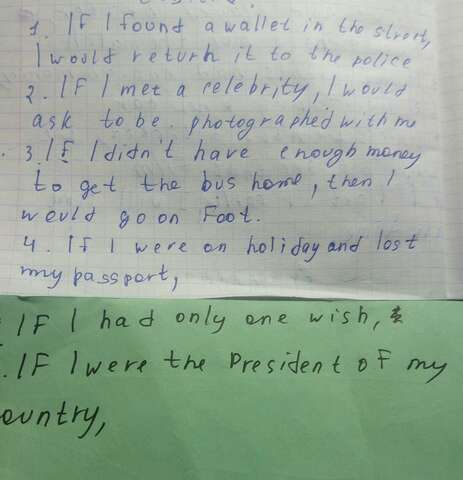 1. If I found a wallet in the street,
I would return it to the police
2. If I met a celebrity, I would
ask to be photographed with me
3. If I didn't have enough money
to get the bus home, then I
would go on Foot.
4. If I were on holiday and lost
my passport,
IF I had only one wish,
. IF I were the President oF my
ountry,